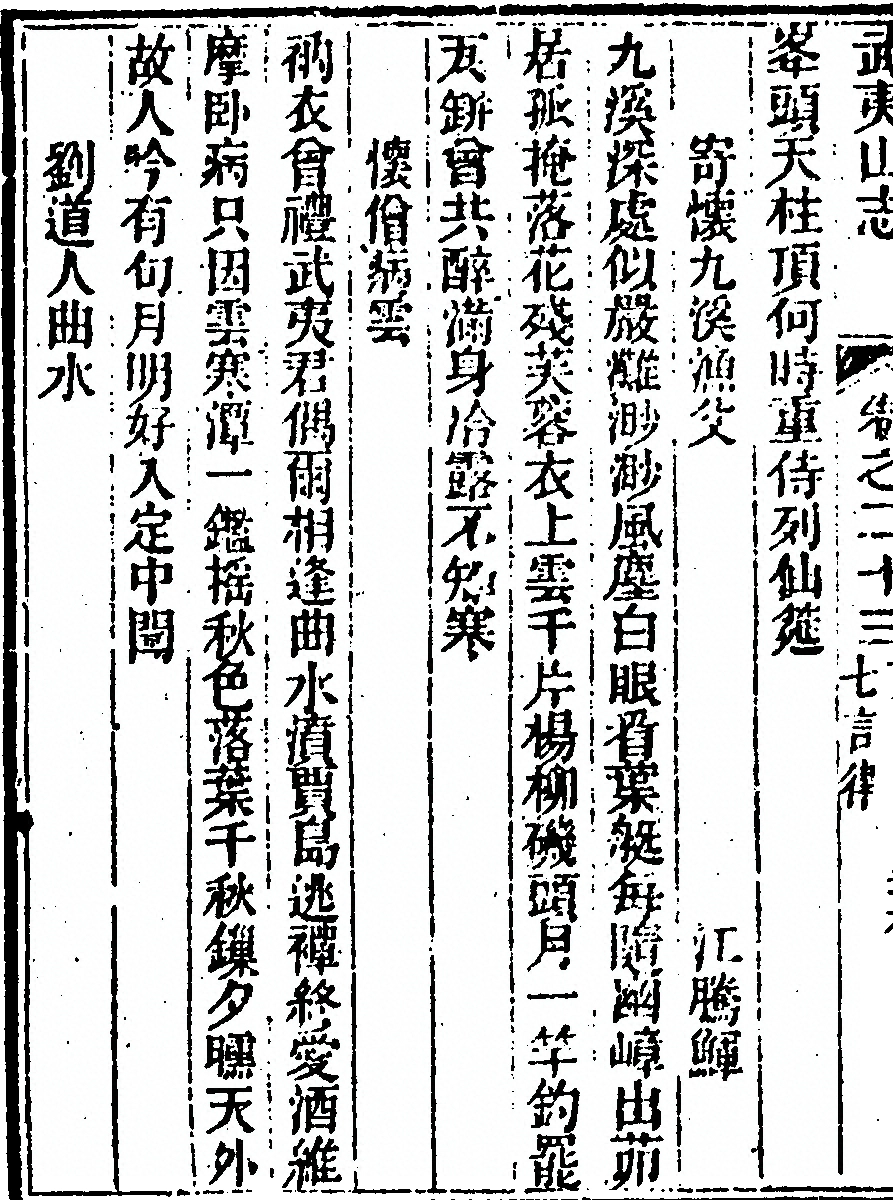 武夷山志 卷之二十三 七言律
峯頭天柱頂何時重侍列仙筵
寄懷九溪漁父 江騰鯶
九溪深處似嚴灘渺渺風塵白眼看葉艇每隨幽嶂出茆
居孤掩落花殘芙蓉衣上雲千片楊柳磯頭月一竿釣罷
瓦缾曾共醉滿身冷露不知寒
懷僧病雲
衲衣曾禮武夷君偶爾相逢曲水濆賈島逃禪終愛酒維
摩卧病只因雲寒潭一鑑搖秋色落葉千秋鏁夕曛天外
故人吟有句月明好入定中聞
劉道人曲水